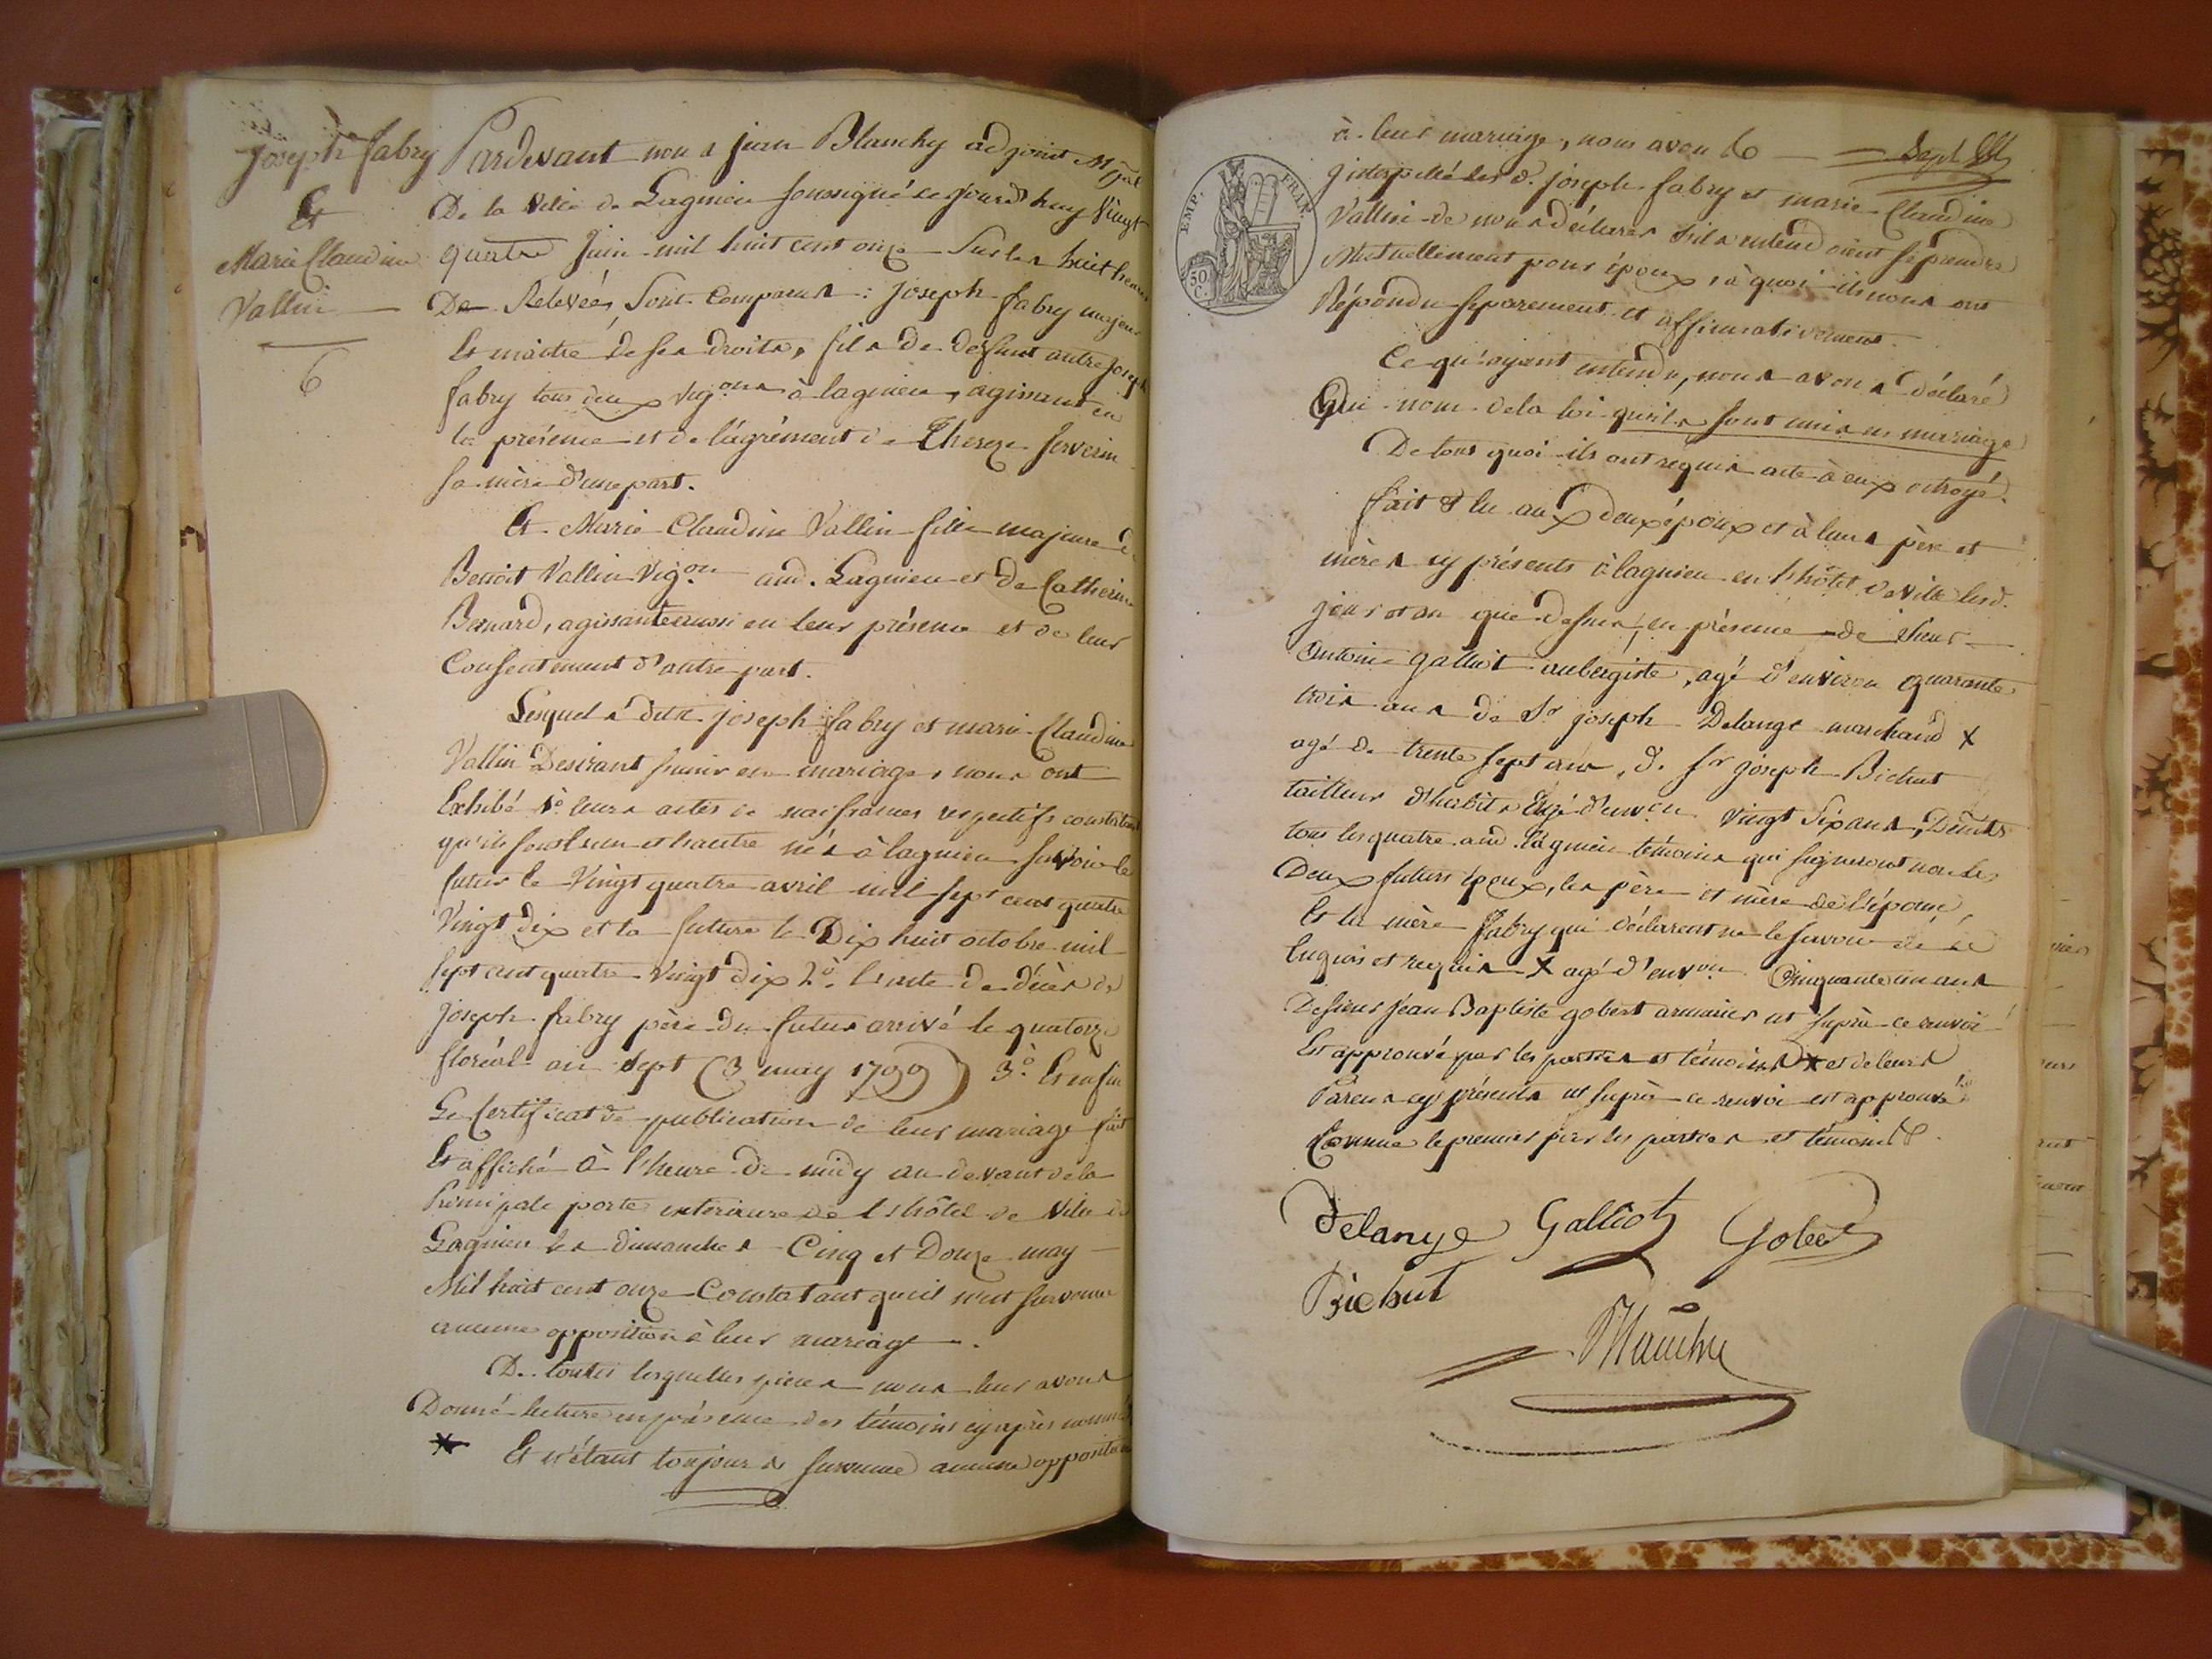 Joseph fabry
Et
Marie Claudine
Vallin
6
Pardevant nous jean Blanchy adjoint Mpal
De la Ville de Lagnieu soussigné ce jourd'huy Vingt
quatre Juin mil huit cent onze Sur les huit heures
De Relevée, Sont Comparus : joseph fabry majeur
Et maître de ses droits, fils de deffunt autre joseph
fabry tous deux vigons à lagnieu, agissant en
la présence et de l'agrément de Thereze serverin
sa mère d'une part.
Et Marie Claudine Vallin fille majeure de
Benoit Vallin Vigon aud. Lagnieu et de Catherine
Banard, agissante aussi en leur présence et de leur
Consentement d'autre part.
Lesquels dits joseph fabry et marie Claudine
Vallin Desirant s'unir en mariage, nous ont
Exhibé 1o leurs actes de naissances respectifs constatant
qu'ils sont l'un et l'autre nés à lagnieu Savoir le
futur le Vingt quatre avril mil sept cent quatre
Vingt dix et la future le Dix huit octobre mil
sept cent quatre Vingt dix 2o. l'acte de décès de
joseph fabry père du futur arrivé le quatorze
floréal an sept (3 may 1799) 3o. Et enfin
Le Certificat de publication de leur mariage fait
Et affiché à l'heure de midy au devant de la
Principale porte exterieure de l'hôtel de Ville de
Lagnieu les dimanches Cinq et Douze may
Mil huit cent onze Constatant qu'il n'est survenu
aucune opposition à leur mariage.
De toutes lesquelles pièces nous leur avons
Donné lecture en présence des témoins cy après nommés
* Et n'étant toujours survenue aucune opposition
à leur mariage, nous avons
EMP. FRAN.
50 C.
jnterpellé les d. joseph fabry et marie Claudine
Vallin de nous déclarer s'ils entendoient se prendre
Mutuellement pour époux, à quoi ils nous ont
Répondu séparement et affirmativement.
Ce qu'ayant entendu, nous avons déclaré
Au nom de la loi qu'ils sont unis en mariage
De tout quoi ils ont requis acte à eux octroyé.
fait & lu aux deux époux et à leurs père et
mères cy présents à lagnieu en l'hôtel de Ville lesd.
jour et an que dessus, en présence de sieur
Antoine galliot aubergiste, agé d'environ quarante
trois ans de Sr joseph Delange marchand X
agé de trente sept ans, d. sr joseph Bichut
tailleur d'habits agé d'envon Vingt Six ans,
tous les quatre aud. Lagnieu témoins qui signeront non les
Deux futurs époux, les père et mère de l'épouse,
Et la mère fabry qui déclarent ne le savoir de ce
Enquis et requis X agé d'envon Cinquante un ans
De sieur jean Baptiste gobert armurier ut suprà ce renvoi
Est approuvé par les parties et témoins * et de leurs
Parens cy présents ut suprà ce renvoi est approuvé
Comme le premier par les parties et témoins
Delange Galliot Gobert
Bichut
Blanchy